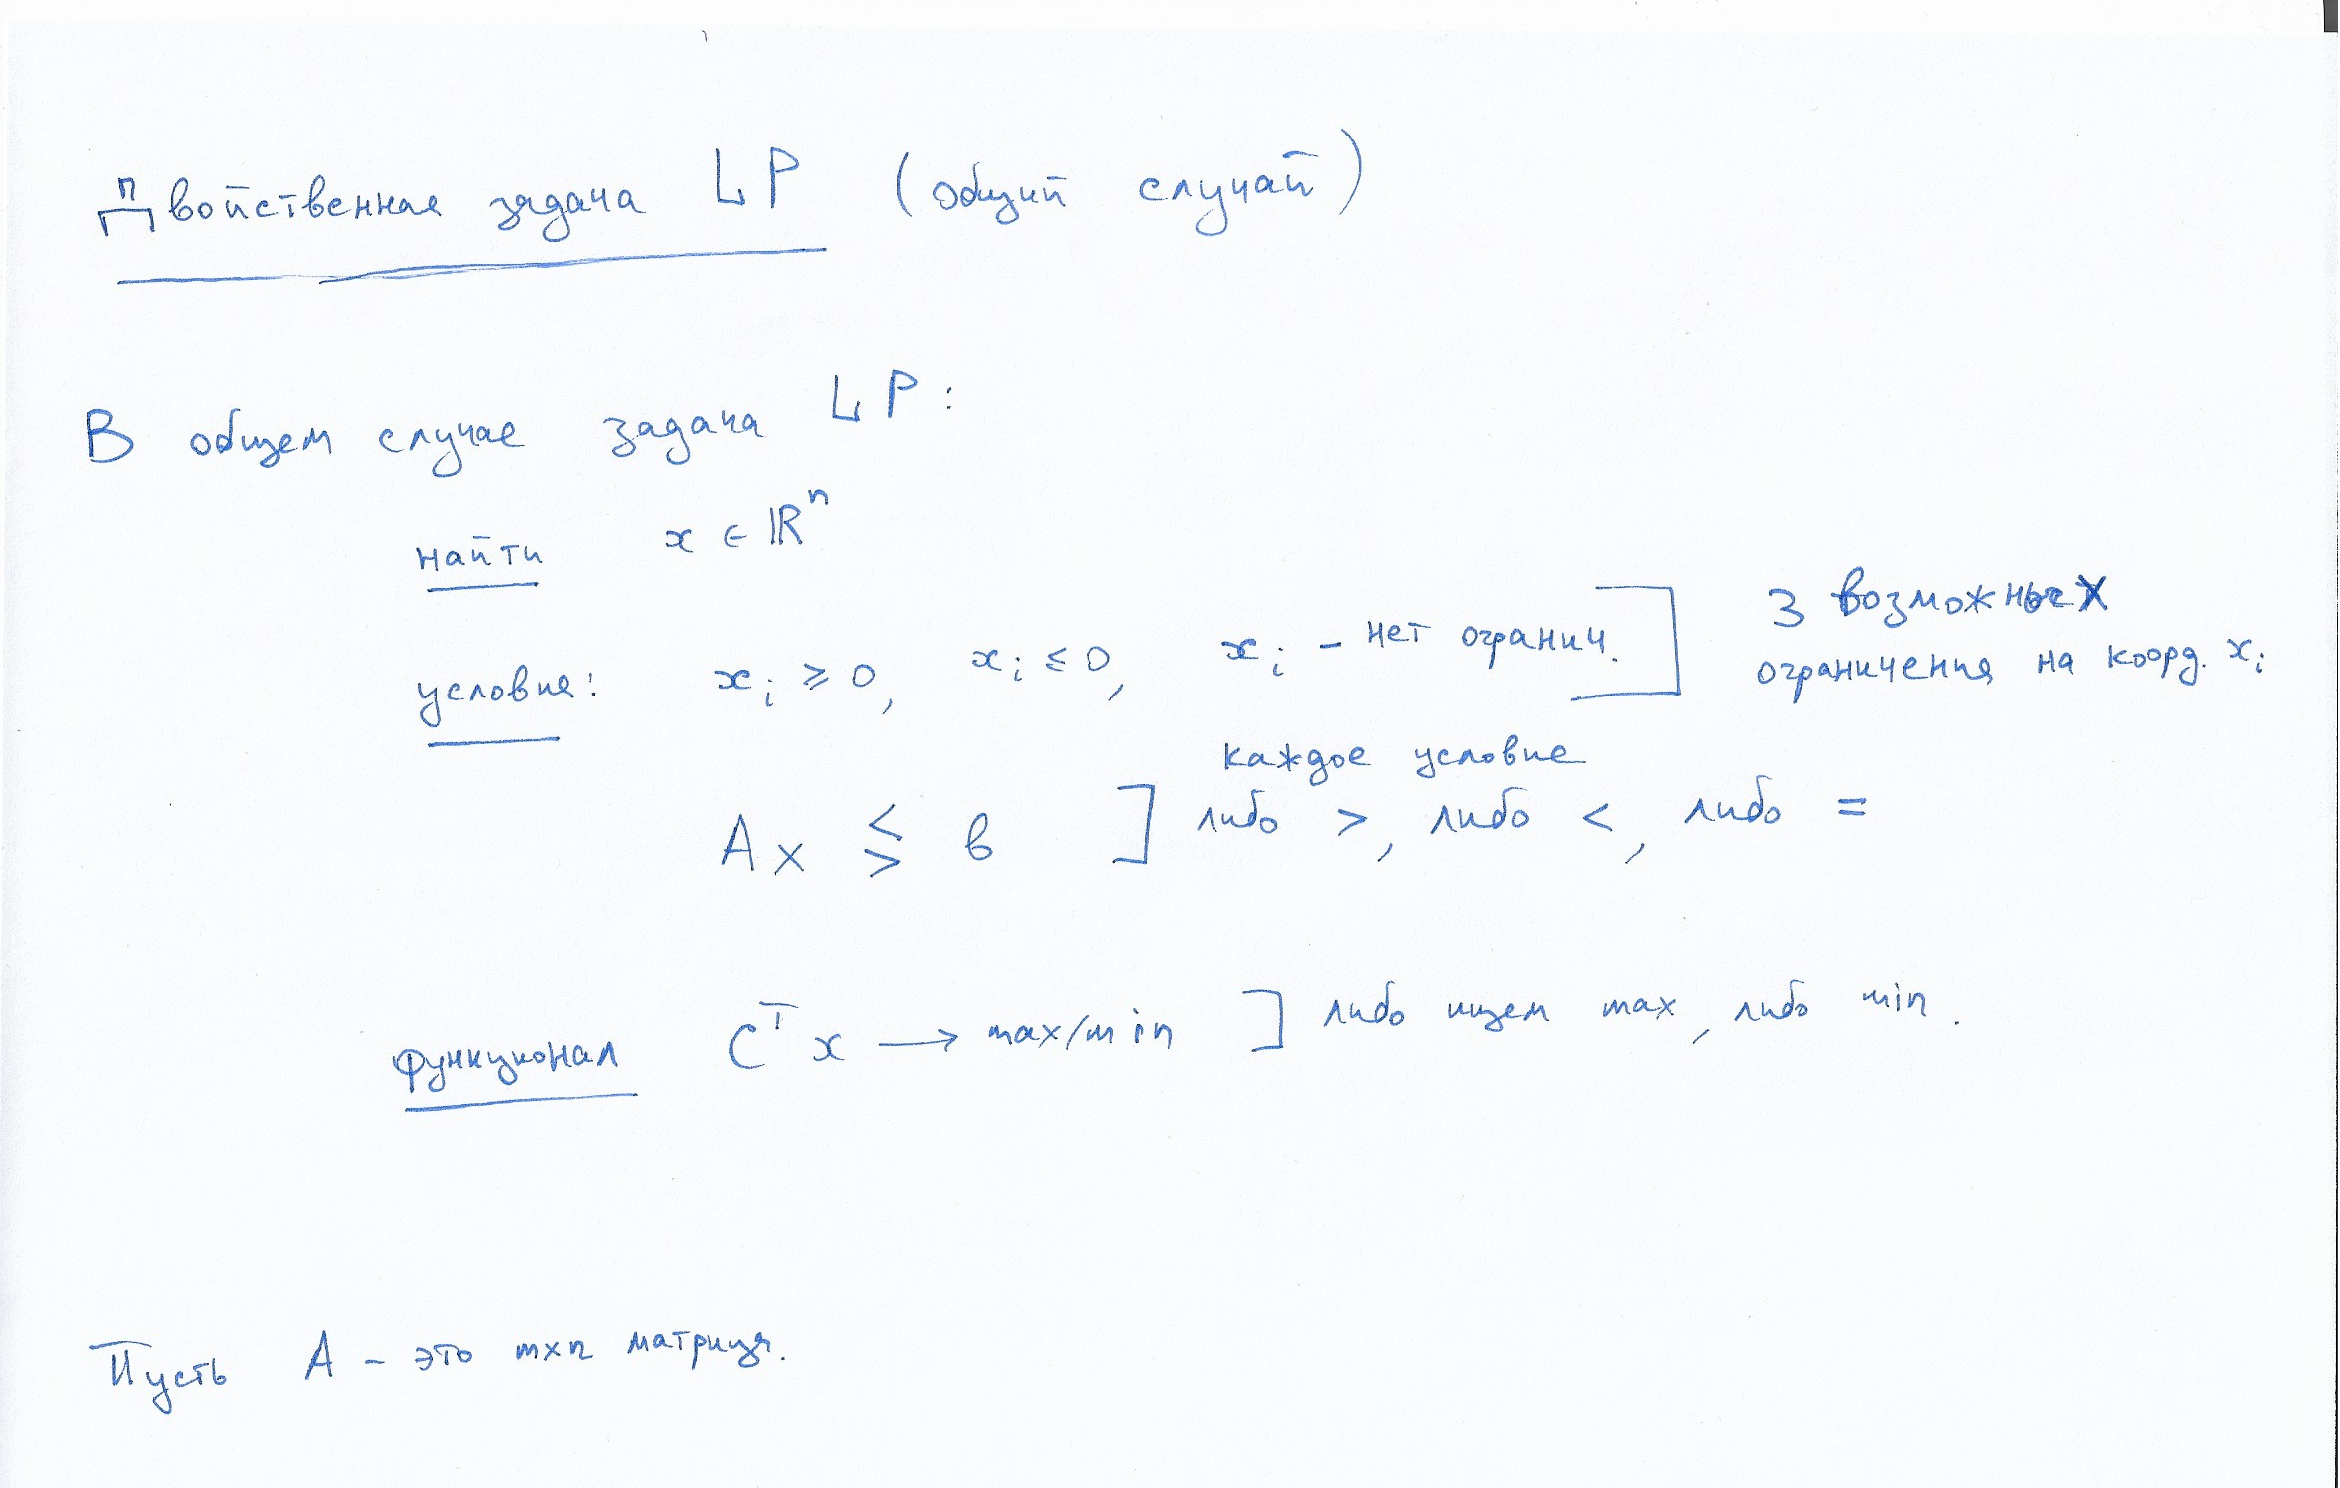 Двойственная задача LP (общий случай)
В общем случае задача LP:
найти x ∈ ℝⁿ
условия: xᵢ ⩾ 0, xᵢ ≤ 0, xᵢ - нет огранич. ] 3 возможных
ограничения на коорд. xᵢ
каждое условие
Ax ≶ b ] либо >, либо <, либо =
функционал Cᵀx → max/min ] либо ищем max, либо min.
Пусть A - это mxn матрица.